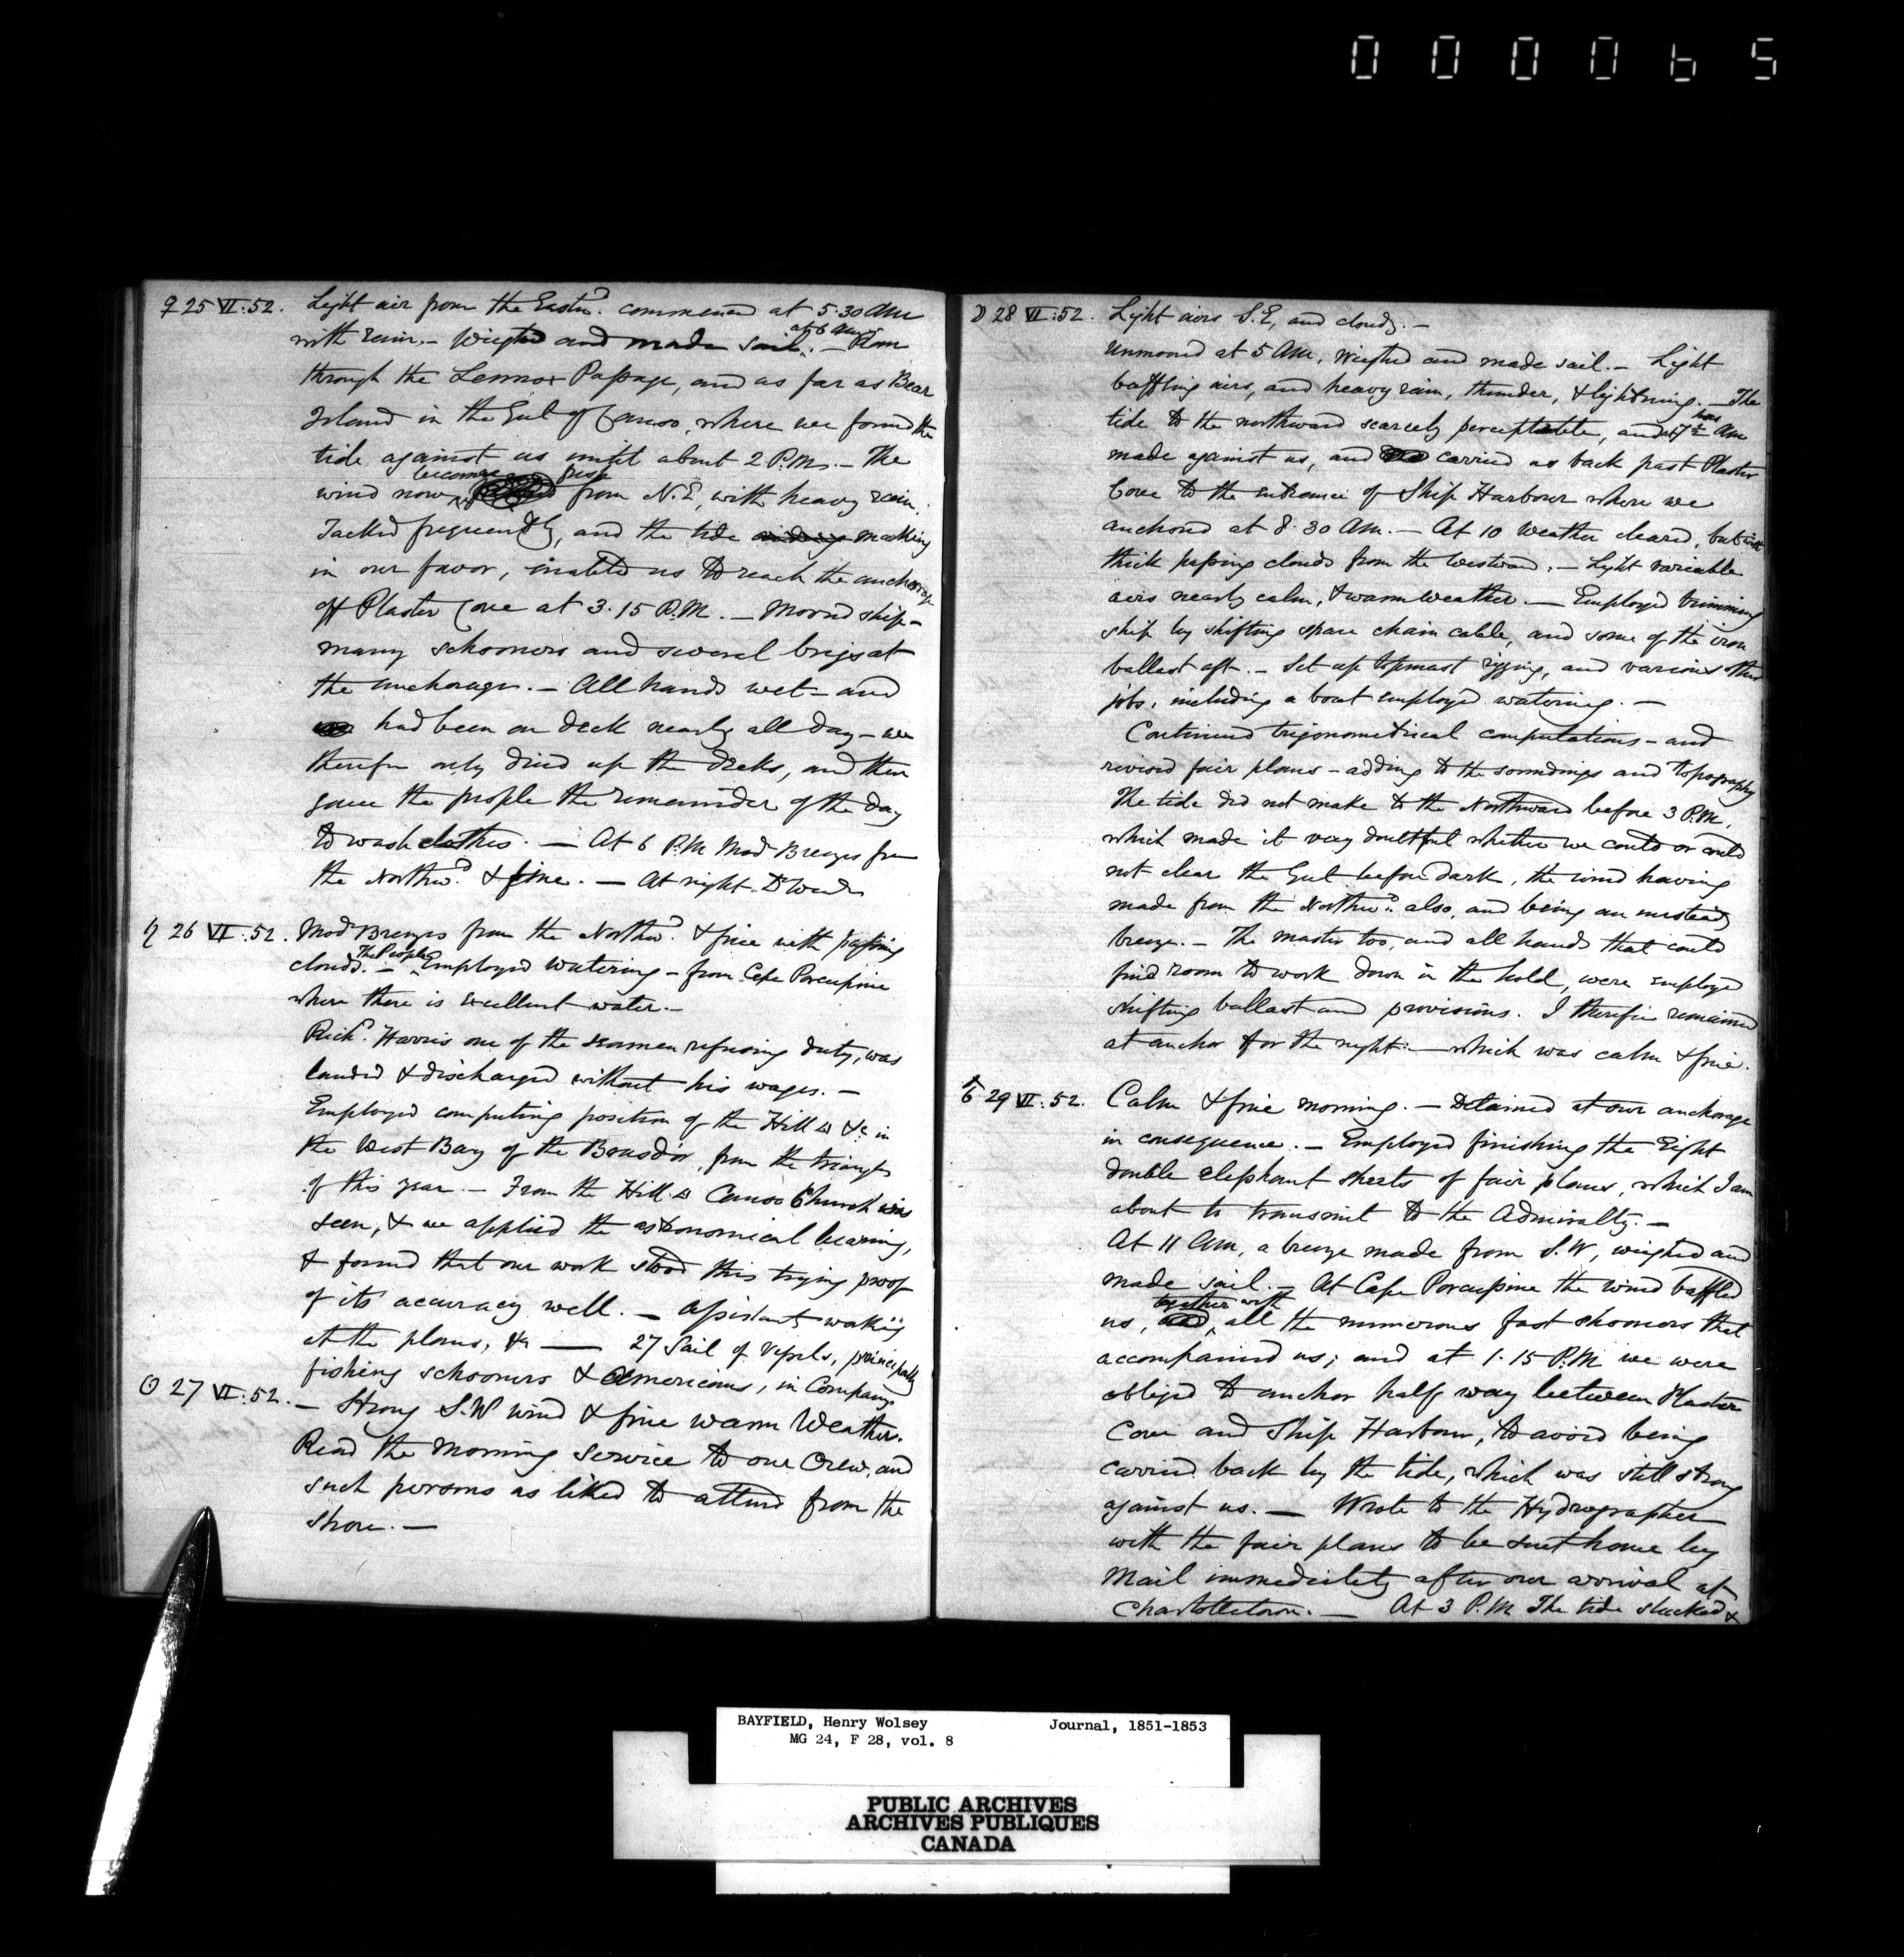 000065
♀ 25 VI: 52. Light air from the Eastwd. commenced at 5.30 AM
with rain. – Weighed and made sail at 6 AM. – Ran
through the Lennox Passage, and as far as Bear
Island in the Gut of Canso, where we found the
tide against us until about 2 P.M. – The
wind now became fresh from N.E, with heavy rain.
Tacked frequently, and the tide making
in our favor, enabled us to reach the anchorage
off Plaster Cove at 3.15 P.M. – Moored ship –
many schooners and several brigs at
the anchorage. – All hands wet – and
had been on deck nearly all day – we
therefore only dried up the decks, and then
gave the people the remainder of the day
to wash clothes. — At 6 P.M Mod Breezes from
the Northwd. & fine. — At night Do Weather
♄ 26 VI: 52. Mod Breezes from the Northwd. & fine with passing
clouds. – The People Employed watering – from Cape Porcupine
where there is excellent water. –
Richd. Harris one of the seamen refusing duty, was
landed & discharged without his wages. –
Employed computing position of the Hill △ &c in
the West Bay of the Brasdor, from the triangles
of this year. – From the Hill △ Canso Church was
seen, & we applied the astronomical bearing,
& found that our work stood this trying proof
of its accuracy well. – Assistants working
at the plans, &c — 27 Sail of Vessels, principally
fishing schooners & Americans, in Company
☉ 27 VI: 52. – Strong S.W wind & fine warm Weather.
Read the Morning Service to our Crew, and
such persons as liked to attend from the
shore. —
☽ 28 VI: 52. Light airs S.E, and cloudy. –
Unmoored at 5 AM, weighed and made sail. – Light
baffling airs, and heavy rain, thunder, & lightning. – The
tide to the northward scarcely perceptible, and at 7½ AM
made against us, and carried us back past Plaster
Cove to the entrance of Ship Harbour where we
anchored at 8.30 AM. – At 10 Weather cleared, but with
thick passing clouds from the Westward. – Light variable
airs nearly calm, & warm weather. — Employed trimming
ship by shifting spare chain cable, and some of the iron
ballast aft. – Set up topmast rigging, and various other
jobs, including a boat employed watering. –
Continued trigonometrical computations – and
revised fair plans – adding to the soundings and topography
The tide did not make to the Northward before 3 P.M,
which made it very doubtful whether we could or could
not clear the Gut before dark, the wind having
made from the Northwd. also, and being an unsteady
breeze. – The master too, and all hands that could
find room to work down in the hold, were employed
shifting ballast and provisions. I therefore remained
at anchor for the night: – which was calm & fine.
♂ 29 VI: 52. Calm & fine morning. – Detained at our anchorage
in consequence. – Employed finishing the Eight
double elephant sheets of fair plans, which I am
about to transmit to the Admiralty. –
At 11 AM, a breeze made from S.W, weighed and
made sail. – At Cape Porcupine the wind baffled
us, together with all the numerous fast shooners that
accompanied us; and at 1.15 P.M we were
obliged to anchor half way between Plaster
Cove and Ship Harbour, to avoid being
carried back by the tide, which was still strong
against us. — Wrote to the Hydrographer
with the fair plans to be sent home by
Mail immediately after our arrival at
Charlottetown. — At 3 P.M The tide slacked &
BAYFIELD, Henry Wolsey Journal, 1851-1853
MG 24, F 28, vol. 8
PUBLIC ARCHIVES
ARCHIVES PUBLIQUES
CANADA